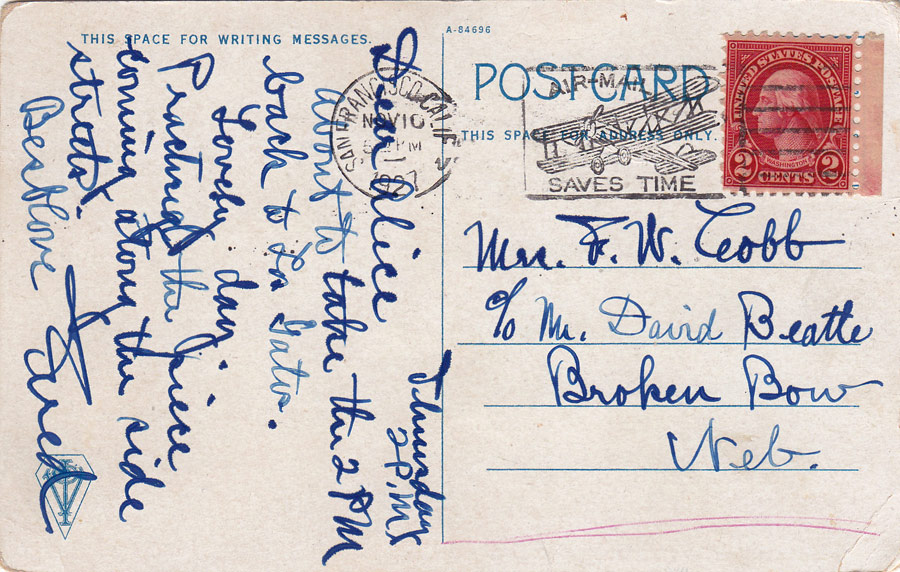 THIS SPACE FOR WRITING MESSAGES.
Thursday
2 P.M.
Dear Alice
About to take the 2 PM
back to Los Gatos.
Lovely day.
the
coming along the side
streets.
Best love
Fred
A-84696
POSTCARD
THIS SPACE FOR ADDRESS ONLY.
SAN FRANCISCO, CALIF
NOV 10
PM
1927
AIR-MAIL
SAVES TIME
UNITED STATES POSTAGE
WASHINGTON
2 CENTS 2
Mrs. F. W. Cobb
c/o Mr. David Beatte
Broken Bow
Neb.